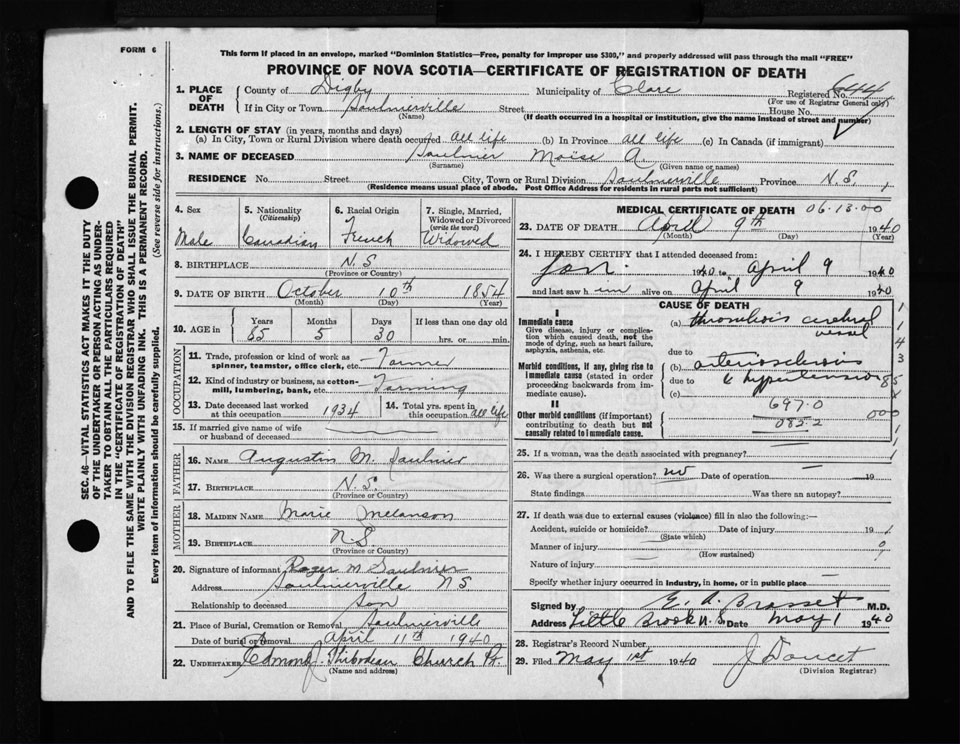 FORM 6
This form if placed in an envelope, marked "Dominion Statistics—Free, penalty for improper use $300," and properly addressed will pass through the mail "FREE"
PROVINCE OF NOVA SCOTIA—CERTIFICATE OF REGISTRATION OF DEATH
SEC. 46—VITAL STATISTICS ACT MAKES IT THE DUTY
OF THE UNDERTAKER OR PERSON ACTING AS UNDER-
TAKER TO OBTAIN ALL THE PARTICULARS REQUIRED
IN THE "CERTIFICATE OF REGISTRATION OF DEATH"
AND TO FILE THE SAME WITH THE DIVISION REGISTRAR WHO SHALL ISSUE THE BURIAL PERMIT.
WRITE PLAINLY WITH UNFADING INK. THIS IS A PERMANENT RECORD.
Every item of Information should be carefully supplied. (See reverse side for instructions.)
1. PLACE OF DEATH
County of Digby Municipality of Clare Registered No. 644
(For use of Registrar General only)
If in City or Town Saulnierville Street House No.
(Name) (If death occurred in a hospital or institution, give the name instead of street and number)
2. LENGTH OF STAY (in years, months and days)
(a) In City, Town or Rural Division where death occurred all life (b) In Province all life (c) In Canada (if immigrant)
3. NAME OF DECEASED Saulnier Moïse A.
(Surname) (Given name or names)
RESIDENCE No. Street City, Town or Rural Division Saulnierville Province N.S.
(Residence means usual place of abode. Post Office Address for residents in rural parts not sufficient)
4. Sex
Male
5. Nationality
(Citizenship)
Canadian
6. Racial Origin
French
7. Single, Married,
Widowed or Divorced
(write the word)
Widowed
8. BIRTHPLACE N.S
(Province or Country)
9. DATE OF BIRTH October 10th 1854
(Month) (Day) (Year)
10. AGE in
Years Months Days If less than one day old
85 5 30 hrs. or min.
OCCUPATION
11. Trade, profession or kind of work as
spinner, teamster, office clerk, etc. Farmer
12. Kind of industry or business, as cotton-
mill, lumbering, bank, etc. Farming
13. Date deceased last worked
at this occupation 1934
14. Total yrs. spent in
this occupation all life
15. If married give name of wife
or husband of deceased
FATHER
16. NAME Augustin M. Saulnier
17. BIRTHPLACE N.S.
(Province or Country)
MOTHER
18. MAIDEN NAME Marie Melanson
19. BIRTHPLACE N.S.
(Province or Country)
20. Signature of informant Roger M Saulnier
Address Saulnierville N S
Relationship to deceased Son
21. Place of Burial, Cremation or Removal Saulnierville
Date of burial or removal April 11th 1940
22. UNDERTAKER Edmond J. Thibodeau Church Pt.
(Name and address)
MEDICAL CERTIFICATE OF DEATH 06.13.00
23. DATE OF DEATH April 9th 1940
(Month) (Day) (Year)
24. I HEREBY CERTIFY that I attended deceased from:
Jan. 1940 to April 9 1940
and last saw him alive on April 9 1940
CAUSE OF DEATH
I
Immediate cause
Give disease, injury or complica-
tion which caused death, not the
mode of dying, such as heart failure,
asphyxia, asthenia, etc.
(a) thrombosis cerebral
vessel
due to
Morbid conditions, if any, giving rise to
immediate cause (stated in order
proceeding backwards from im-
mediate cause).
(b) arteriosclerosis
due to & hypertension
(c)
697.0
II
Other morbid conditions (if important)
contributing to death but not
causally related to immediate cause.
085.2
1
1
4
3
85
000
25. If a woman, was the death associated with pregnancy?
26. Was there a surgical operation? no Date of operation 19
State findings Was there an autopsy?
27. If death was due to external causes (violence) fill in also the following:—
Accident, suicide or homicide? Date of injury 19
(State which)
Manner of injury
(How sustained)
Nature of injury
Specify whether injury occurred in industry, in home, or in public place
Signed by E. A. Brasset M.D.
Address Little Brook N.S Date May 1 1940
28. Registrar's Record Number
29. Filed May 1st 1940 J Doucet
(Division Registrar)